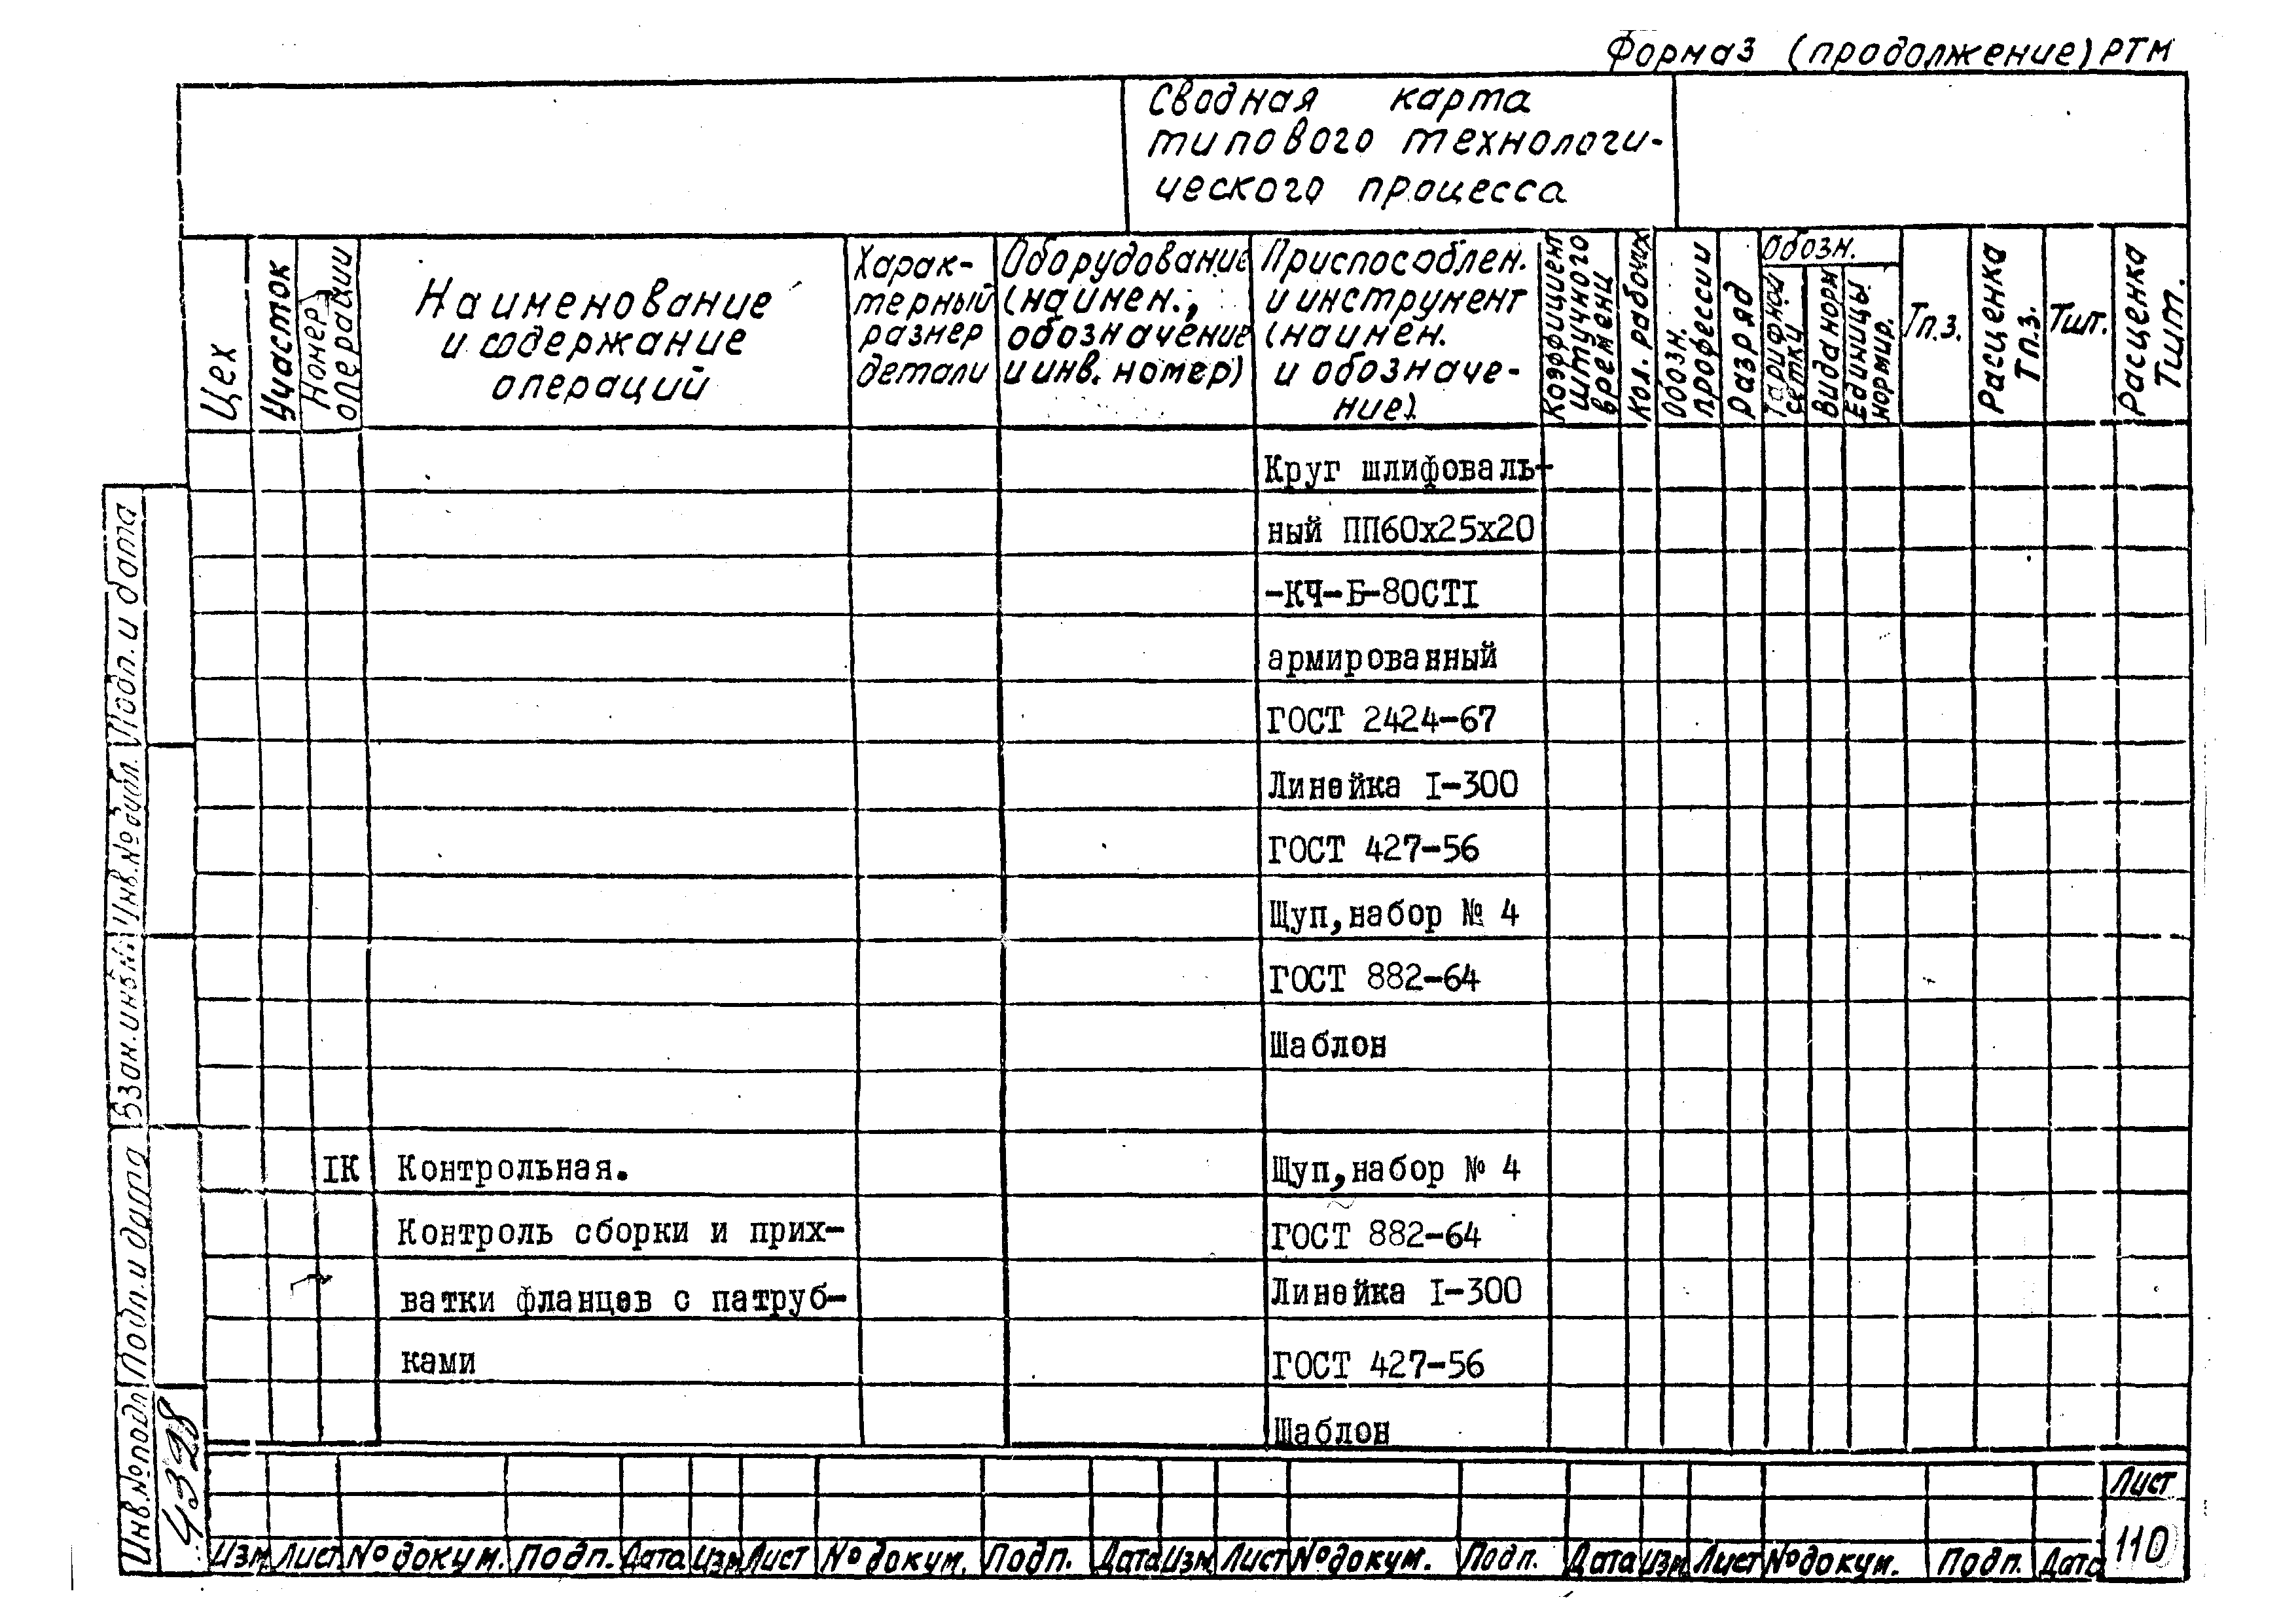 Форма3 (продолжение) РТМ
Сводная карта
типового технологи-
ческого процесса
Цех
Участок
Номер
операции
Наименование
и содержание
операций
Харак-
терный
размер
детали
Оборудование
(наимен.,
обозначение
и инв. номер)
Приспособлен.
и инструмент
(наимен.
и обозначе-
ние).
Коэффициент
штучного
времени
Кол. рабочих
Обозн.
профессии
Разряд
Обозн.
Тарифной
сетки
Вида норм
Единицы
нормир.
Тп.з.
Расценка
Тп.з.
Тшт.
Расценка
Тшт.
Круг шлифоваль-
ный ПП60х25х20
-КЧ-Б-80СТI
армированный
ГОСТ 2424-67
Линейка I-300
ГОСТ 427-56
Щуп,набор № 4
ГОСТ 882-64
Шаблон
IК Контрольная. Щуп,набор № 4
Контроль сборки и прих- ГОСТ 882-64
ватки фланцев с патруб- Линейка I-300
ками ГОСТ 427-56
Шаблон
Подп. и дата
Инв.№ дубл.
Взам.инв.№
Подп. и дата
Инв.№подл
4328
Изм Лист №докум. Подп. Дата Изм Лист №докум. Подп. Дата Изм Лист №докум. Подп. Дата Изм Лист №докум. Подп. Дата
Лист
110